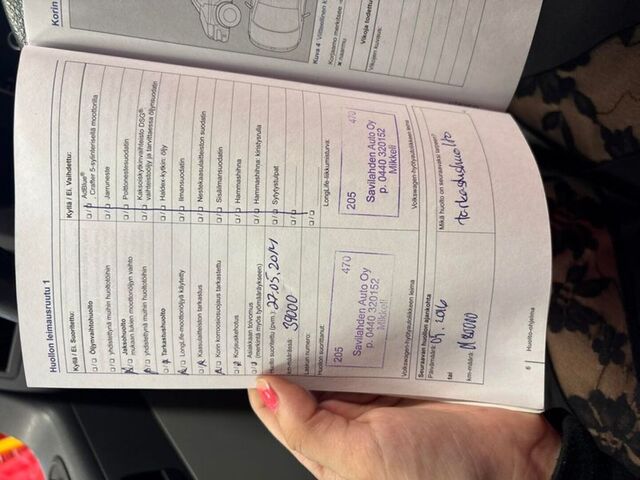 Huollon leimausruutu 1
Kyllä / Ei. Suoritettu:
Öljynvaihtohuolto
yhdistettynä muihin huoltotöihin
Jaksohuolto
mukaan lukien moottoriöljyn vaihto
yhdistettynä muihin huoltotöihin
Tarkastushuolto
LongLife-moottoriöljyä käytetty
Kaasulaitteiston tarkastus
Korin korroosiosuojaus tarkastettu
Korjauskehotus
Asiakkaan toivomus
(merkintä myös työmääräykseen)
suoritettu (pvm.): 27.05.2014
km-määrässä: 39000
Laskun numero:
Huollon suorittanut:
205 470
Savilahden Auto Oy
p. 0440 320152
Mikkeli
Volkswagen-hyötyajoneuvoliikkeen leima
Kyllä / Ei. Vaihdettu:
AdBlue®
Crafter 5-sylinterisellä moottorilla
Jarruneste
Polttonestesuodatin
Kaksoiskytkinvaihteisto DSG®
vaihteistoöljy ja tarvittaessa öljynsuodatin
Haldex-kytkin: öljy
Ilmansuodatin
Nestekaasulaitteiston suodatin
Sisäilmansuodatin
Hammashihna
Hammashihna: kiristysrulla
Sytytystulpat
LongLife-liikkumisturva:
205 470
Savilahden Auto Oy
p. 0440 320152
Mikkeli
Volkswagen-hyötyajoneuvoliikkeen leima
Seuraavan huollon ajankohta
Päivämäärä:
tai
km-määrä:
Mikä huolto on seuraavaksi tarpeen?
tarkastushuolto
6 Huolto-ohjelma
Korin
Kuva 4
Vikoja todettu
Vikojen kuvaus: